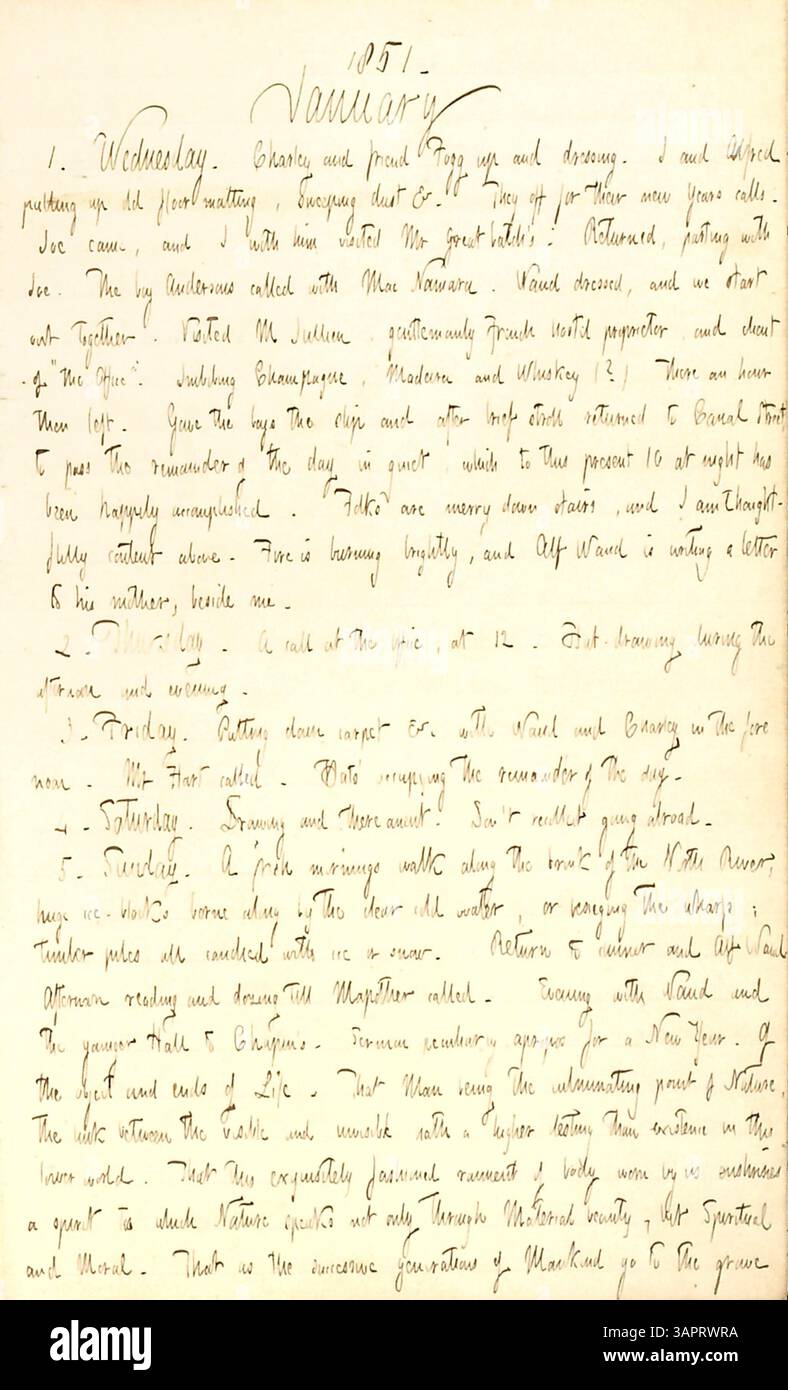 1851.
January
1. Wednesday. Charley and friend Fogg up and dressing. I and Alfred
putting up old floor matting, sweeping dust &c. They off for their new Years calls.
Joe came, and I with him visited Mr Greatbatch's. Returned, parting with
Joe. The boy Andersons called with Mac Namara. Waud dressed, and we start
out together. Visited M Jullien, gentlemanly French hostel proprietor, and client
of "the Office". Imbibing Champagne, Madeira and Whiskey (?) There an hour
then left. Gave the boys the slip and after brief stroll returned to Canal Street
to pass the remainder of the day in quiet, which to this present 10 at night has
been happily accomplished. Folks are merry down stairs, and I am thought-
fully content above. Fire is burning brightly, and Alf Waud is writing a letter
to his mother, beside me.
2. Thursday. A call at the office, at 12. drawing during the
afternoon and evening.
3. Friday. Putting down carpet &c with Waud and Charley in the fore
noon. Mr Hart called. occupying the remainder of the day.
4. Saturday. Drawing and thereanent. Don't recollect going abroad.
5. Sunday. A fresh mornings walk along the brink of the North River,
huge ice-blocks borne along by the clear cold water, or besieging the wharfs;
timber piles all candied with ice or snow. Return to dinner and Alf Waud
Afternoon reading and dozing till Mapother called. Evening with Waud and
the younger Hall to Chapin's. Sermon peculiarly apropos for a New Year. Of
the object and ends of Life. That Man being the culminating point of Nature,
the link between the visible and invisible hath a higher destiny than existence in this
lower world. That this exquisitely fashioned raiment of body worn by us enshrines
a spirit to which Nature speaks not only through Material beauty, but Spiritual
and Moral. That as the successive generations of Mankind go to the grave
alamy
Image ID: 3APRWRA
www.alamy.com